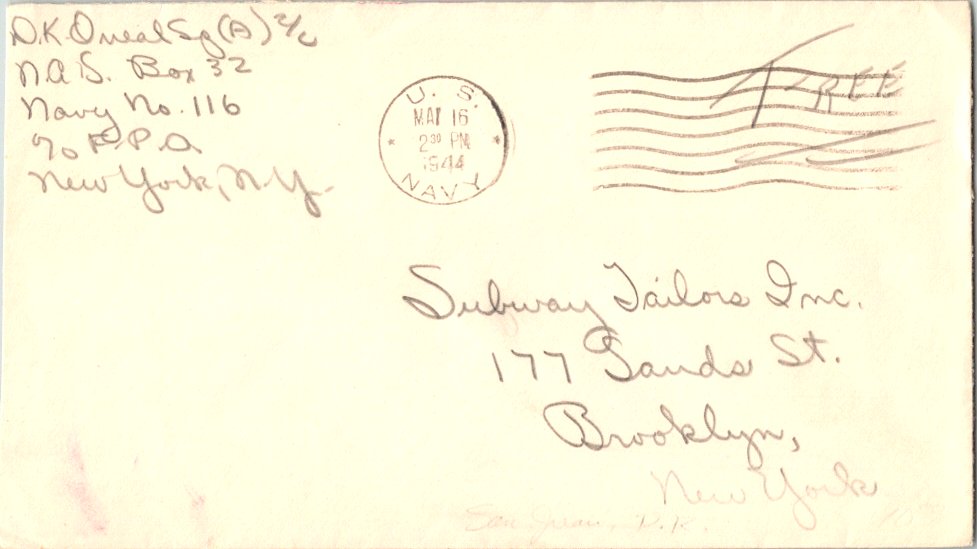 D.K. Oneal Sg (A) 2/c
N.A.S. Box 32
Navy No. 116
% F.P.O.
New York, N.Y.
U. S.
MAY 16
2 30 PM
1944
NAVY
FREE
Subway Tailors Inc.
177 Sands St.
Brooklyn,
New York
San Juan, P.R.